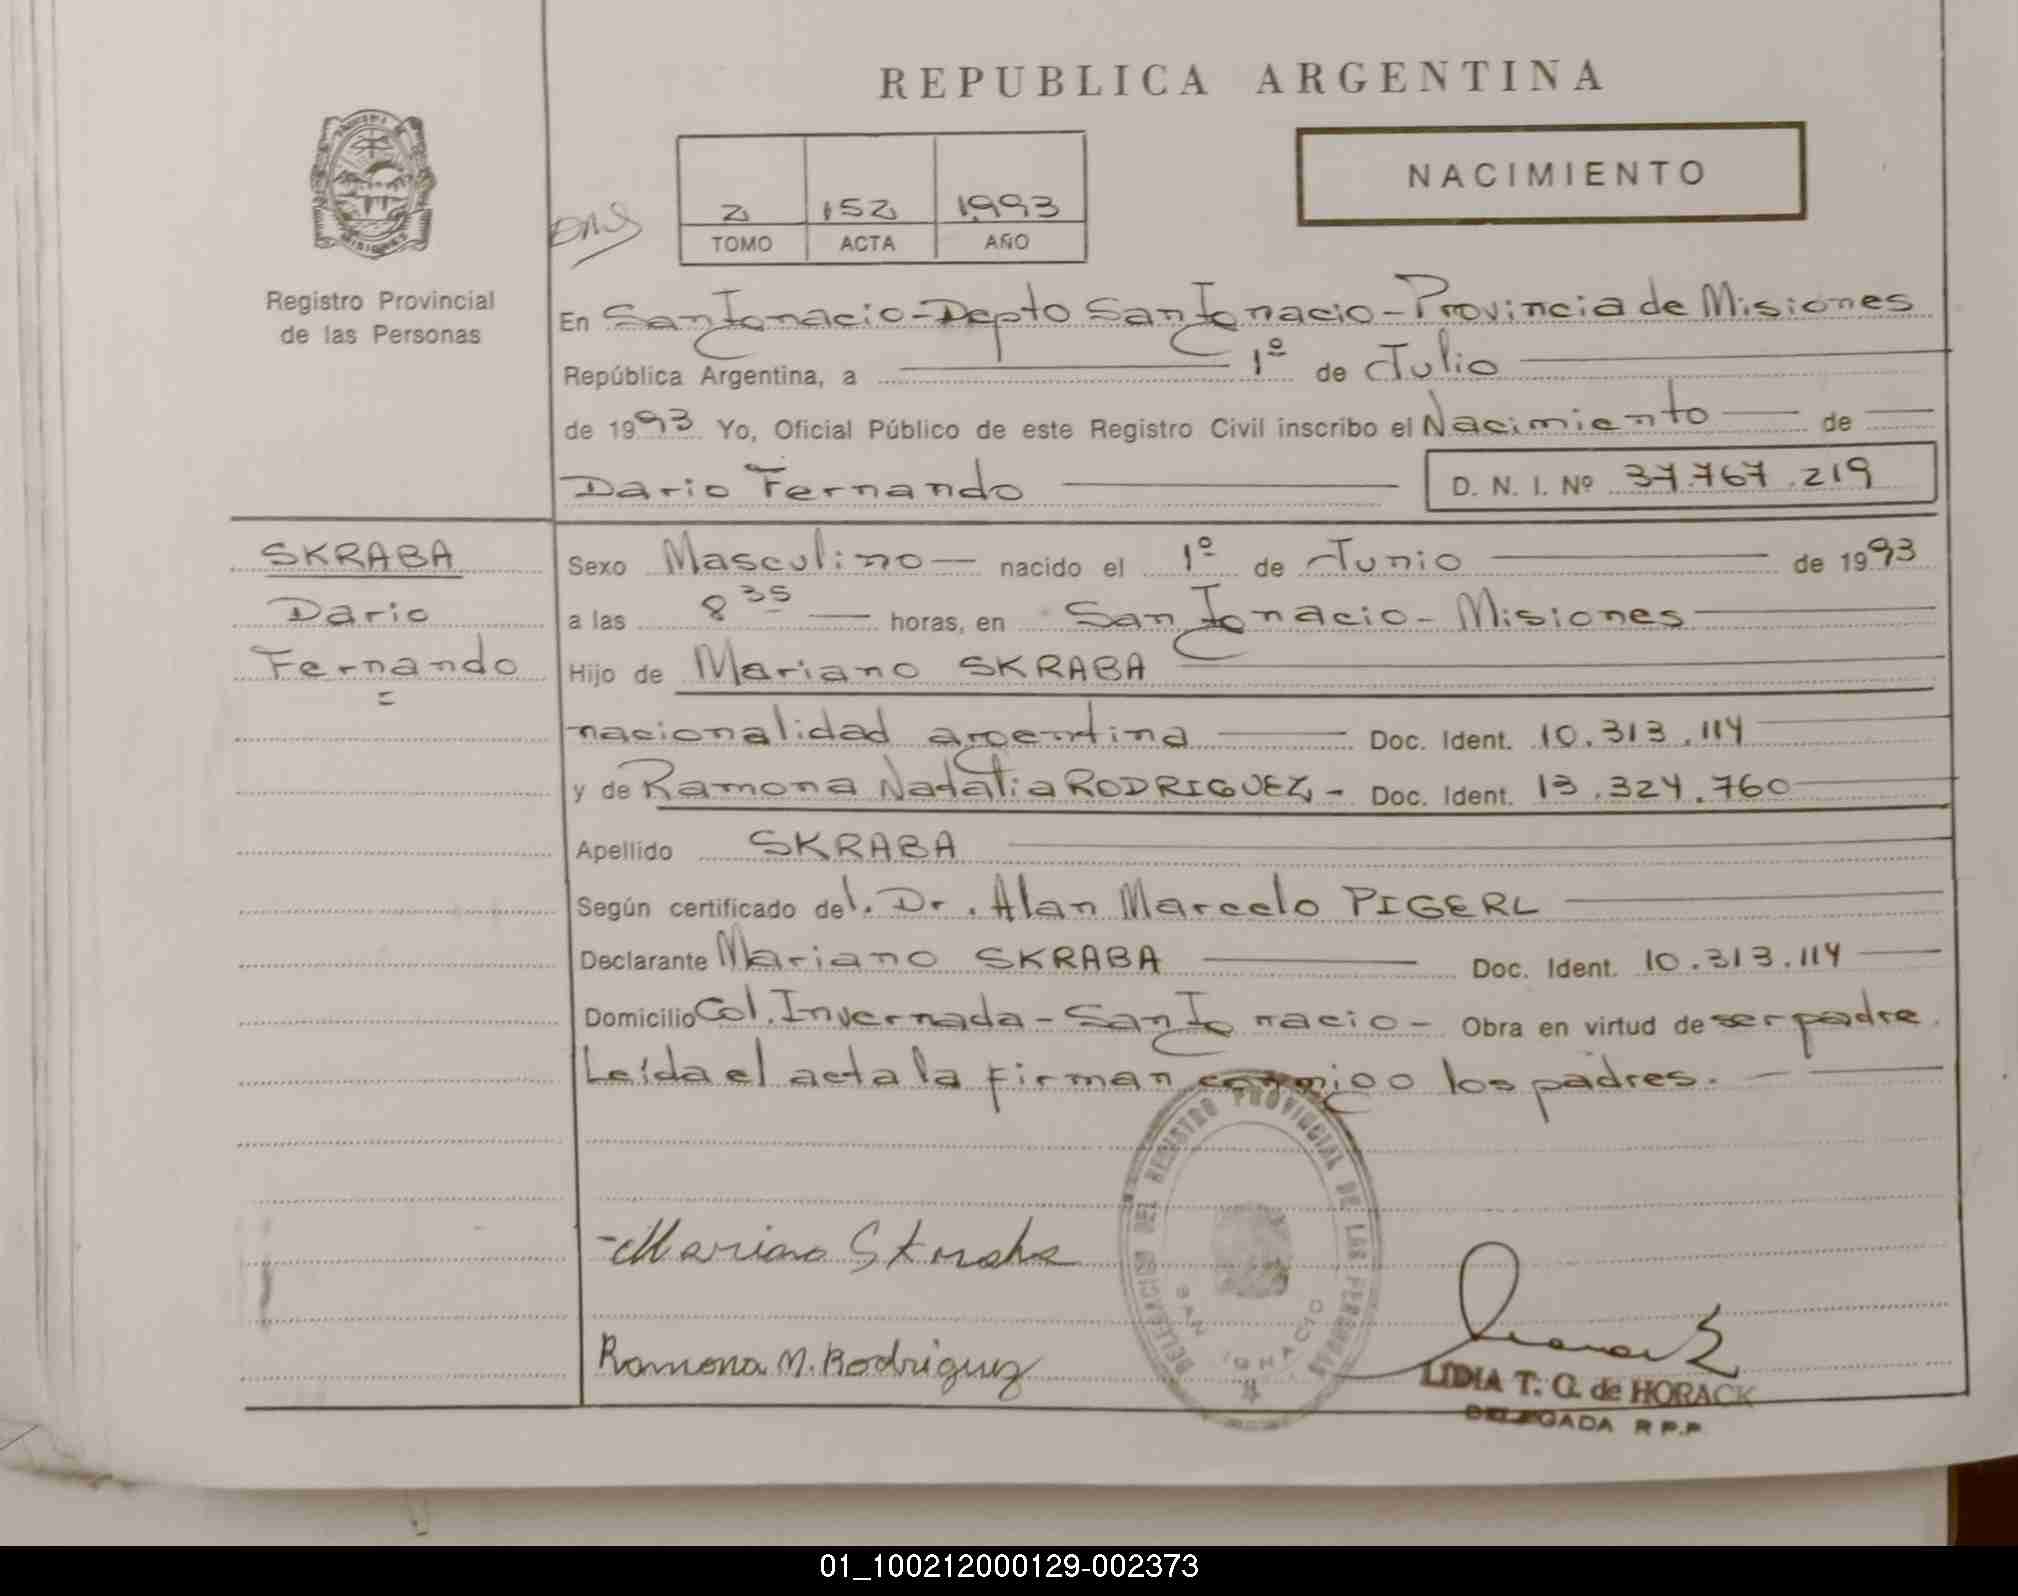 REPUBLICA ARGENTINA
NACIMIENTO
2 152 1993
TOMO ACTA AÑO
MISIONES
Registro Provincial
de las Personas
En San Ignacio - Depto San Ignacio - Provincia de Misiones
República Argentina, a 1º de Julio
de 1993 Yo, Oficial Público de este Registro Civil inscribo el Nacimiento de
Dario Fernando D. N. I. Nº 37.767.219
SKRABA
Dario
Fernando
Sexo Masculino nacido el 1º de Junio de 1993
a las 8 35 horas, en San Ignacio - Misiones
Hijo de Mariano SKRABA
nacionalidad argentina Doc. Ident. 10.313.114
y de Ramona Natalia RODRIGUEZ - Doc. Ident. 13.324.760
Apellido SKRABA
Según certificado del. Dr. Alan Marcelo PIGERL
Declarante Mariano SKRABA Doc. Ident. 10.313.114
Domicilio Col. Invernada - San Ignacio - Obra en virtud de ser padre.
Leída el acta la firman conmigo los padres.
DELEGACION DEL REGISTRO PROVINCIAL DE LAS PERSONAS
SAN IGNACIO
Mariano Skraba
Ramona N. Rodriguez
LIDIA T. G. de HORACK
DELEGADA R.P.P.
01_100212000129-002373